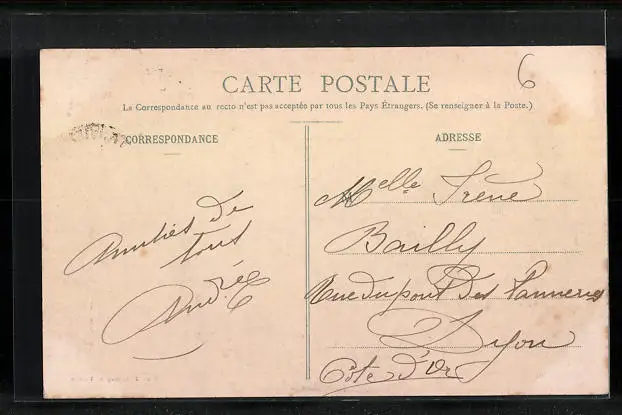 6
CARTE POSTALE
La Correspondance au recto n'est pas acceptée par tous les Pays Étrangers. (Se renseigner à la Poste.)
CORRESPONDANCE
Amitiés de
tous
Andrée
ADRESSE
Melle Irène
Bailly
Rue du pont des Tanneries
Dijon
Côte d'Or